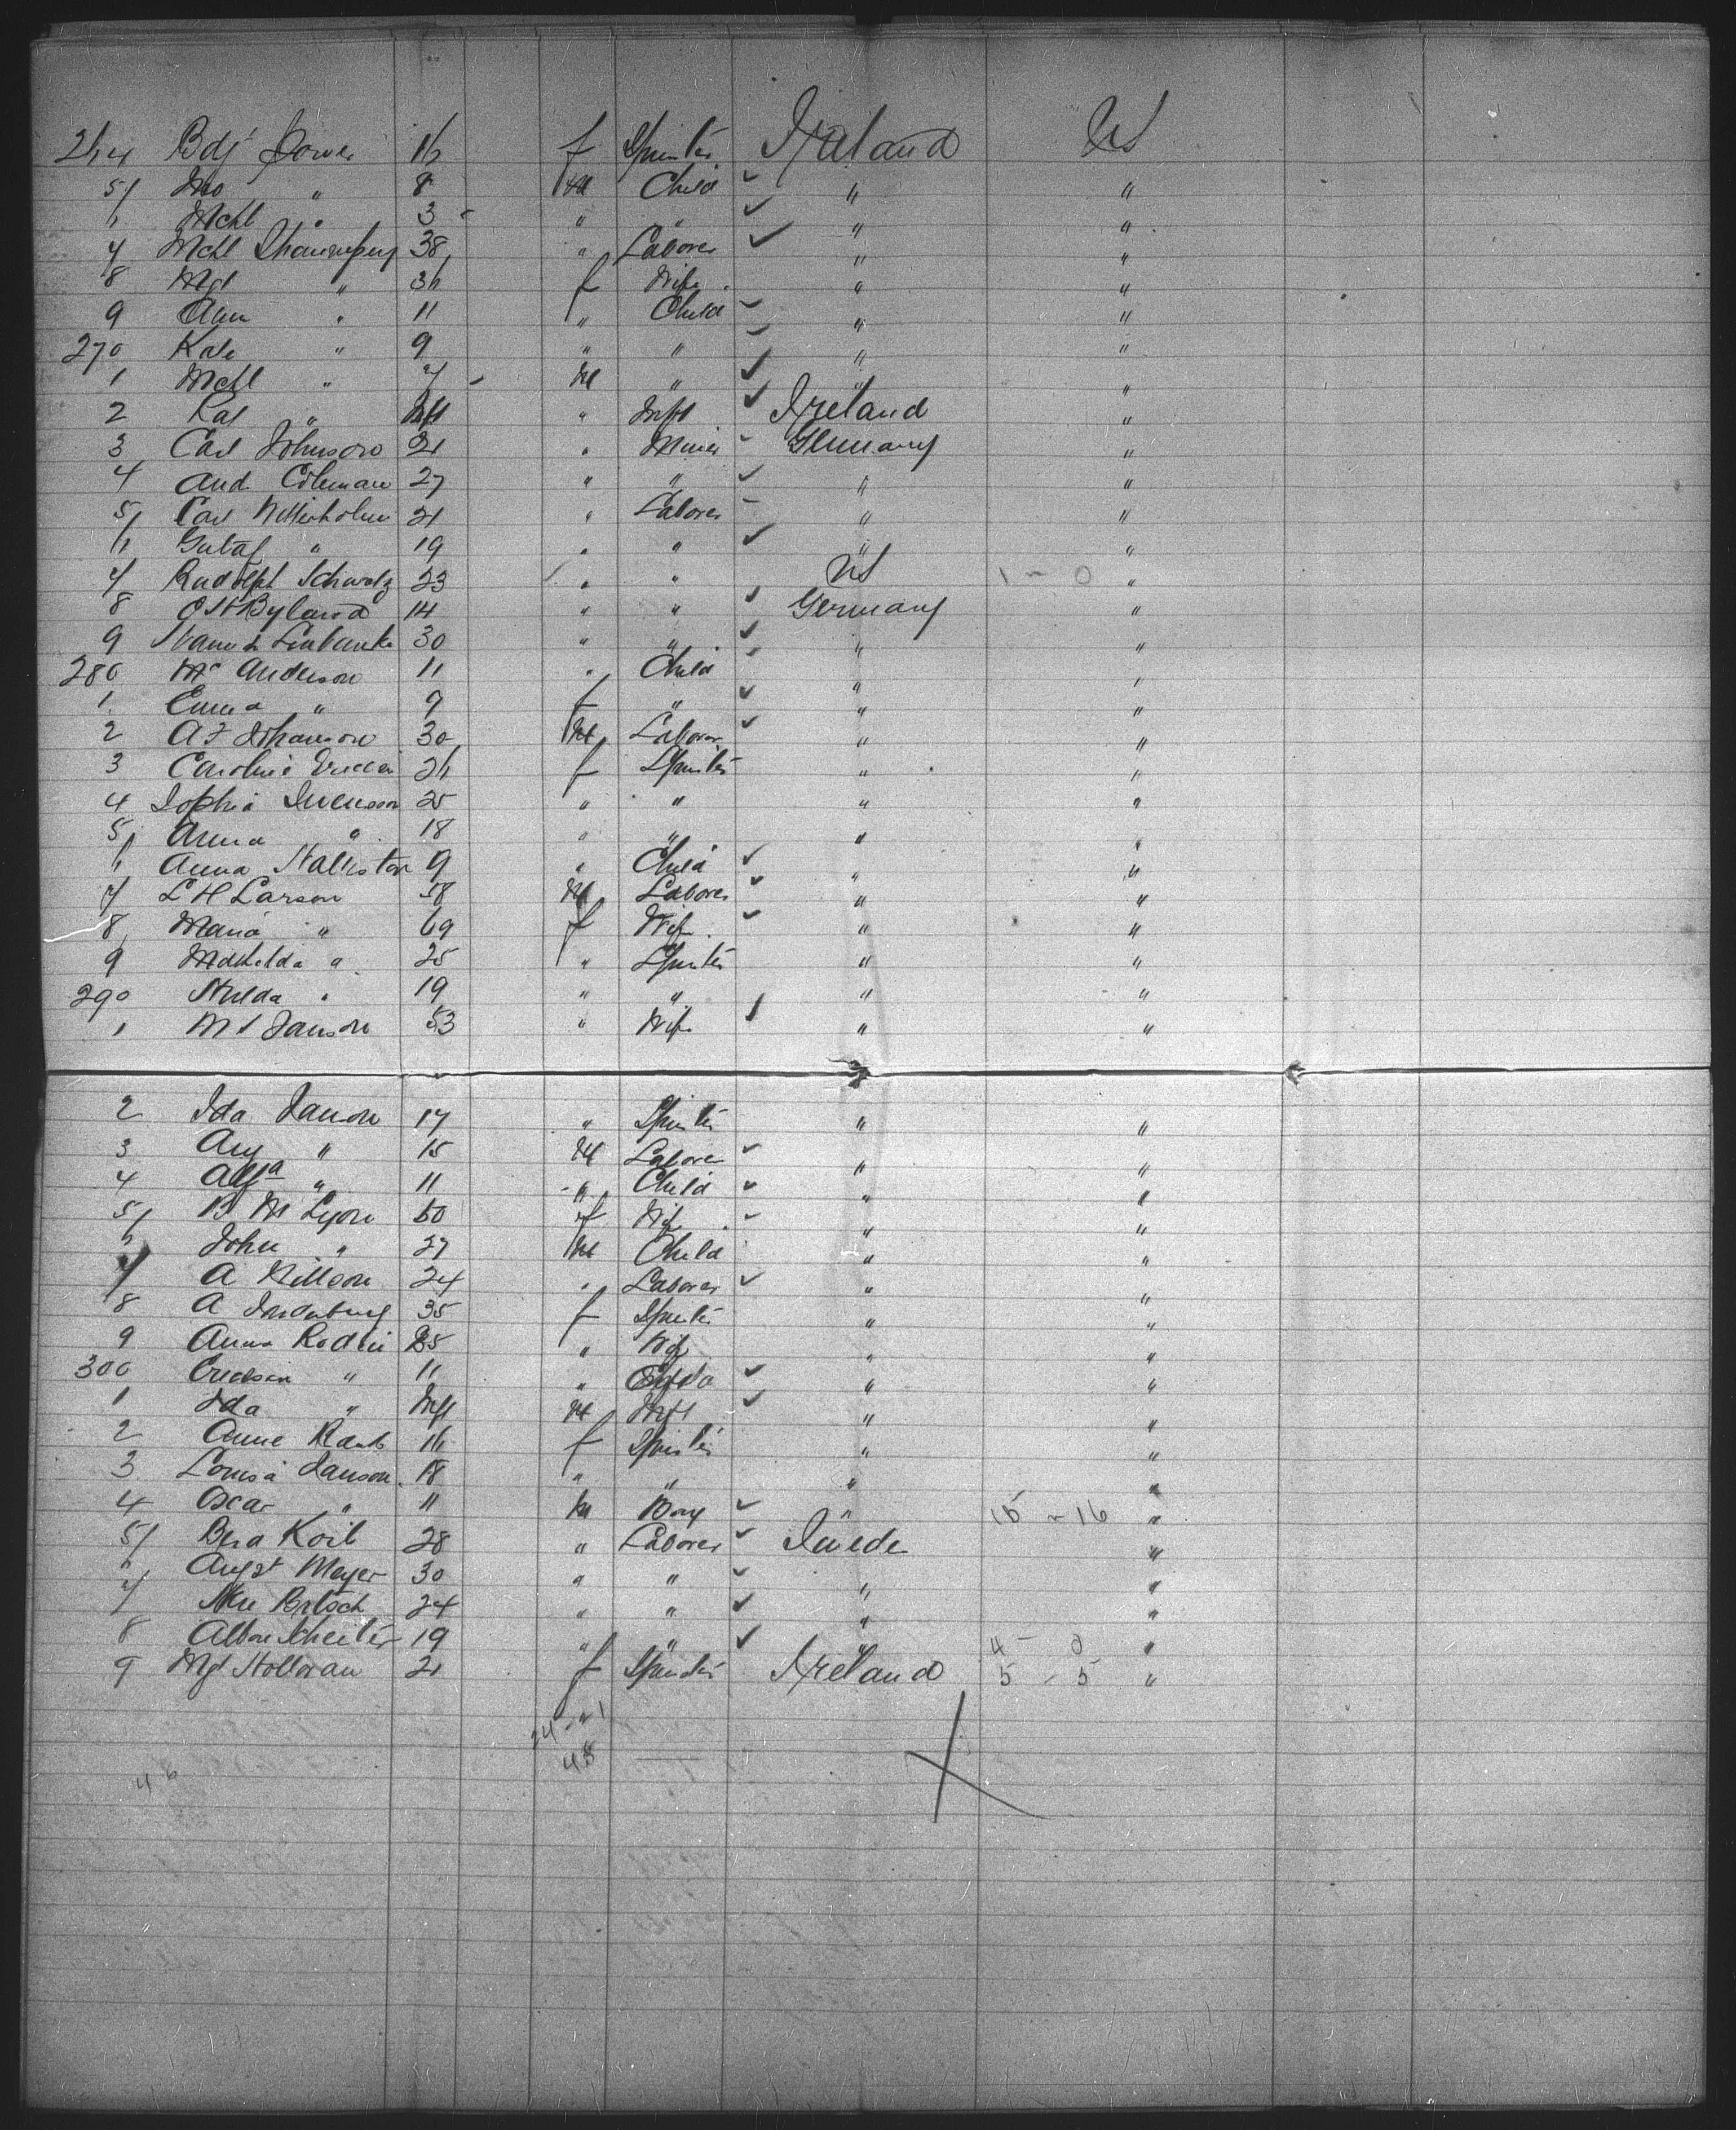 264 Bdj Power 16 f Spinster Ireland US
5 Jno " 8 M Child ✓ " "
6 Mchl " 3 - " " ✓ " "
7 Mchl 38 " Laborer ✓ " "
8 Mgt " 36 f Wife " "
9 Ann " 11 " Child ✓ " "
270 Kate " 9 " " ✓ " "
1 Mchl " 7 - M " ✓ " "
2 Pat " Inft " Inft ✓ Ireland "
3 Carl Johnson 21 " Miner ✓ Germany "
4 And Coleman 27 " " ✓ " "
5 Carl 21 " Laborer - " "
6 Gustaf " 19 " " ✓ " "
7 Rudolph Schwatz 23 " " US 1 - 0 "
8 Byland 14 " " ✓ Germany "
9 30 " " ✓ " "
280 Anderson 11 " Child ✓ " "
1 Emma " 9 f " ✓ " "
2 A F Johanson 30 M Laborer ✓ " "
3 Caroline 26 f Spinster " "
4 Sophia Svensson 25 " " " "
5 Anna " 18 " " " "
6 Anna 9 " Child ✓ " "
7 L H Larson 58 M Laborer ✓ " "
8 Maria " 69 f Wife ✓ " "
9 Mathilda " 25 " Spinster " "
290 Hulda " 19 " " " "
1 Janson 53 " Wife ✓ " "
2 Ida Janson 17 " Spinster " "
3 Aug " 15 M Laborer ✓ " "
4 " 11 " Child ✓ " "
5 B M Lyon 50 f Wife ✓ " "
6 John " 27 M Child " "
7 A Nillson 24 " Laborer ✓ " "
8 A 35 f Spinster " "
9 Anna Rodin 25 " Wife " "
300 " 11 " Child ✓ " "
1 Ida " Inft M Inft ✓ " "
2 Anne 16 f Spinster " "
3 Louisa Janson 18 " " " "
4 Oscar " 11 M Boy ✓ 15 - 16 "
5 28 " Laborer ✓ Suede "
6 Augst Meyer 30 " " ✓ " "
7 24 " " ✓ " "
8 19 " " ✓ " 4 - 0 "
9 Mgt Holloran 21 f Spinster Ireland 5 - 5 "
24 - 21
48
46